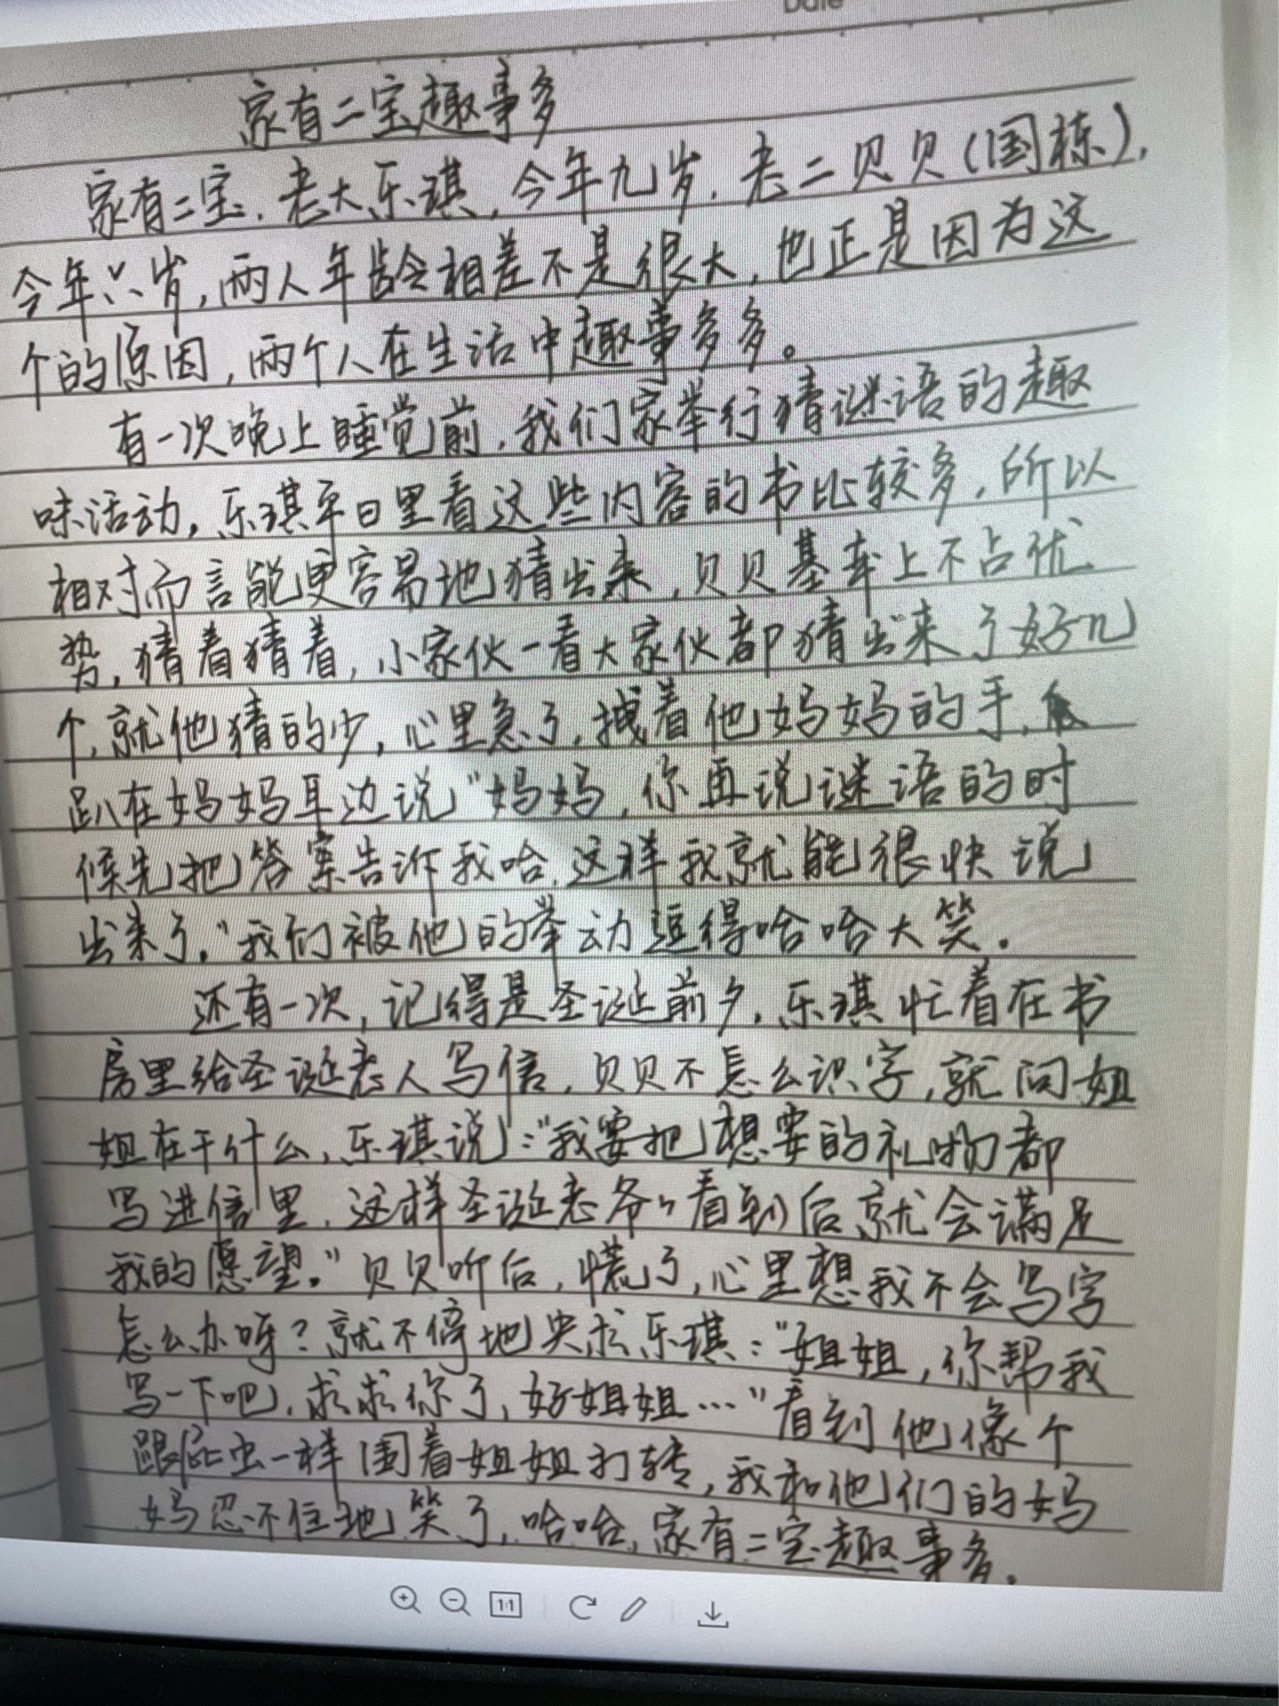 Date
家有二宝趣事多
家有二宝，老大乐琪，今年九岁，老二贝贝（国栋），
今年六岁，两人年龄相差不是很大，也正是因为这
个的原因，两个人在生活中趣事多多。
有一次晚上睡觉前，我们家举行猜谜语的趣
味活动，乐琪平日里看这些内容的书比较多，所以
相对而言能更容易地猜出来，贝贝基本上不占优
势，猜着猜着，小家伙一看大家伙都猜出来了好几
个，就他猜的少，心里急了，拽着他妈妈的手，
趴在妈妈耳边说“妈妈，你再说谜语的时
候先把答案告诉我哈，这样我就能很快说
出来了。”我们被他的举动逗得哈哈大笑。
还有一次，记得是圣诞前夕，乐琪忙着在书
房里给圣诞老人写信，贝贝不怎么识字，就问姐
姐在干什么，乐琪说：“我要把想要的礼物都
写进信里，这样圣诞老爷爷看到后就会满足
我的愿望。”贝贝听后，慌了，心里想我不会写字
怎么办呀？就不停地央求乐琪：“姐姐，你帮我
写一下吧，求求你了，好姐姐…”看到他像个
跟屁虫一样围着姐姐打转，我和他们的妈
妈忍不住地笑了，哈哈，家有二宝趣事多。
1:1